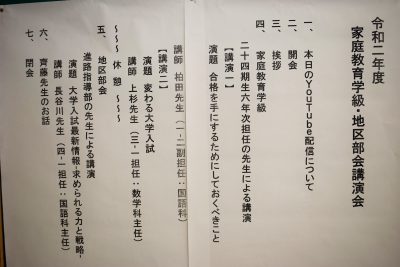 令和二年度
家庭教育学級・地区部会講演会
一、本日のYouTube配信について
二、開会
三、挨拶
四、家庭教育学級
二十四期生六年次担任の先生による講演
【講演一】
演題 合格を手にするためにしておくべきこと
講師 柏田先生(一-二副担任:国語科)
【講演二】
演題 変わる大学入試
講師 上杉先生(三-一担任:数学科主任)
~~~休憩~~~
五、地区部会
進路指導部の先生による講演
演題 大学入試最新情報-求められる力と戦略-
講師 長谷川先生(四-一担任:国語科主任)
六、齊藤先生のお話
七、閉会